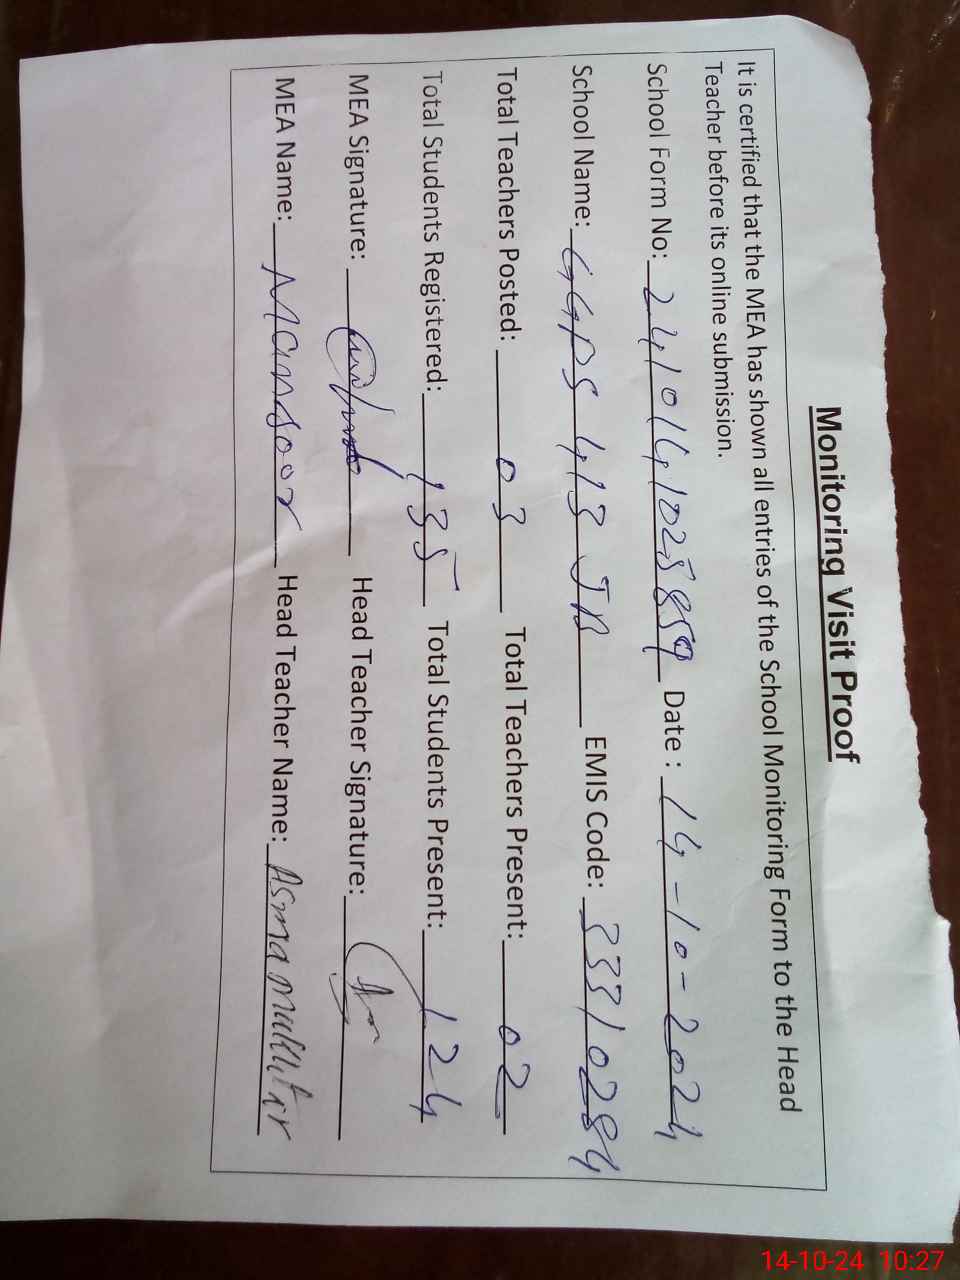 Monitoring Visit Proof
It is certified that the MEA has shown all entries of the School Monitoring Form to the Head
Teacher before its online submission.
School Form No: Date : 14-10-2024
School Name: GGPS 413 JB EMIS Code: 33310284
Total Teachers Posted: 03 Total Teachers Present: 02
Total Students Registered: 135 Total Students Present: 124
MEA Signature: Head Teacher Signature:
MEA Name: Mansoor Head Teacher Name: Asma
14-10-24 10:27